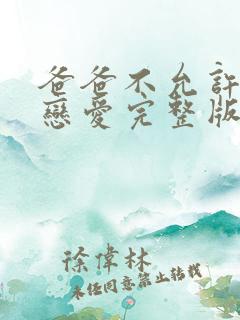 爸爸不允許
戀愛完整版
徐偉林
未任同意禁止轉載